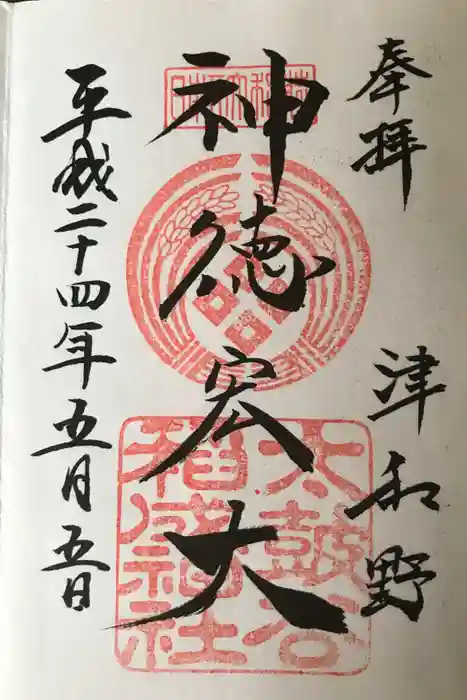 奉拝 津和野
神徳宏大
平成二十四年五月五日
太皷谷
稲成神社